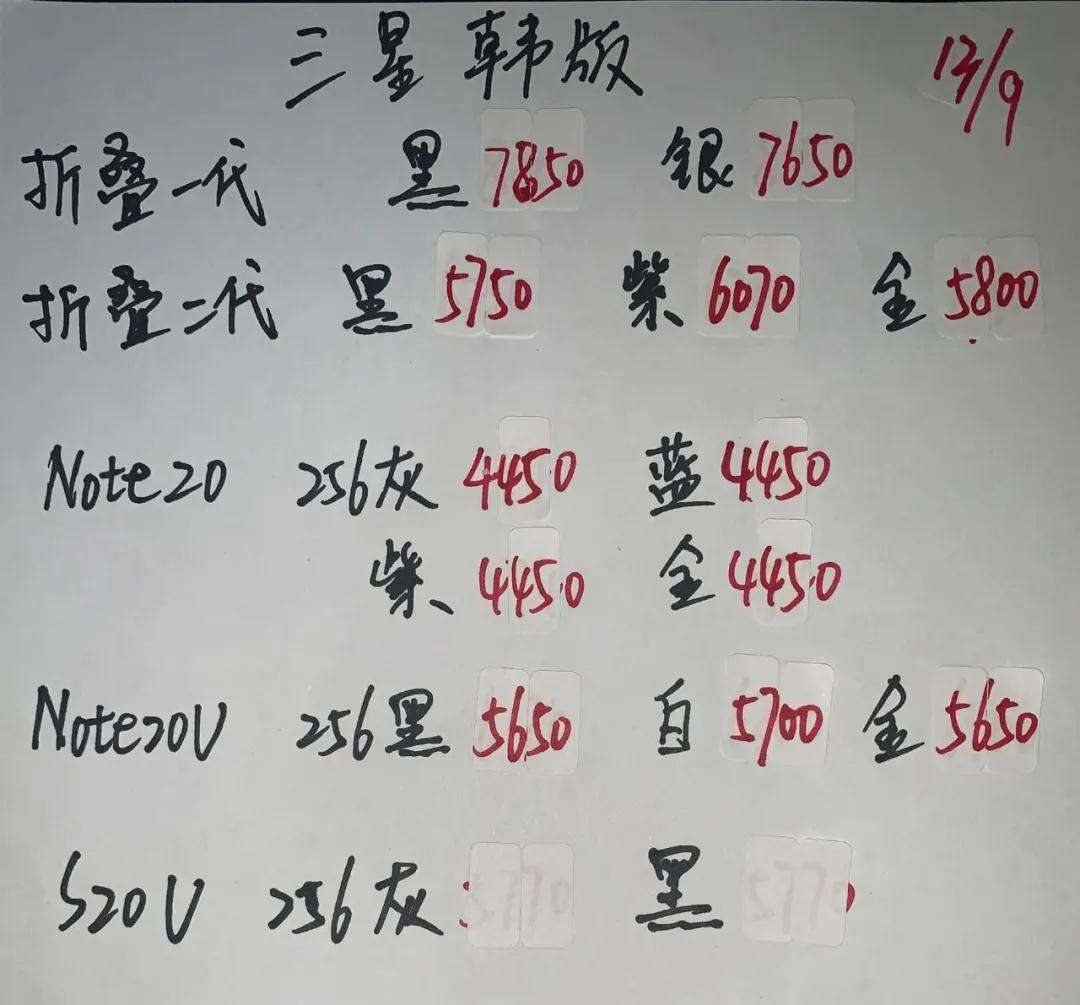 三星 韩版 13/9
折叠一代 黑 7850 银 7650
折叠二代 黑 5750 紫 6070 金 5800
Note20 256 灰 4450 蓝 4450
紫 4450 金 4450
Note20U 256 黑 5650 白 5700 金 5650
S20U 256 灰 黑